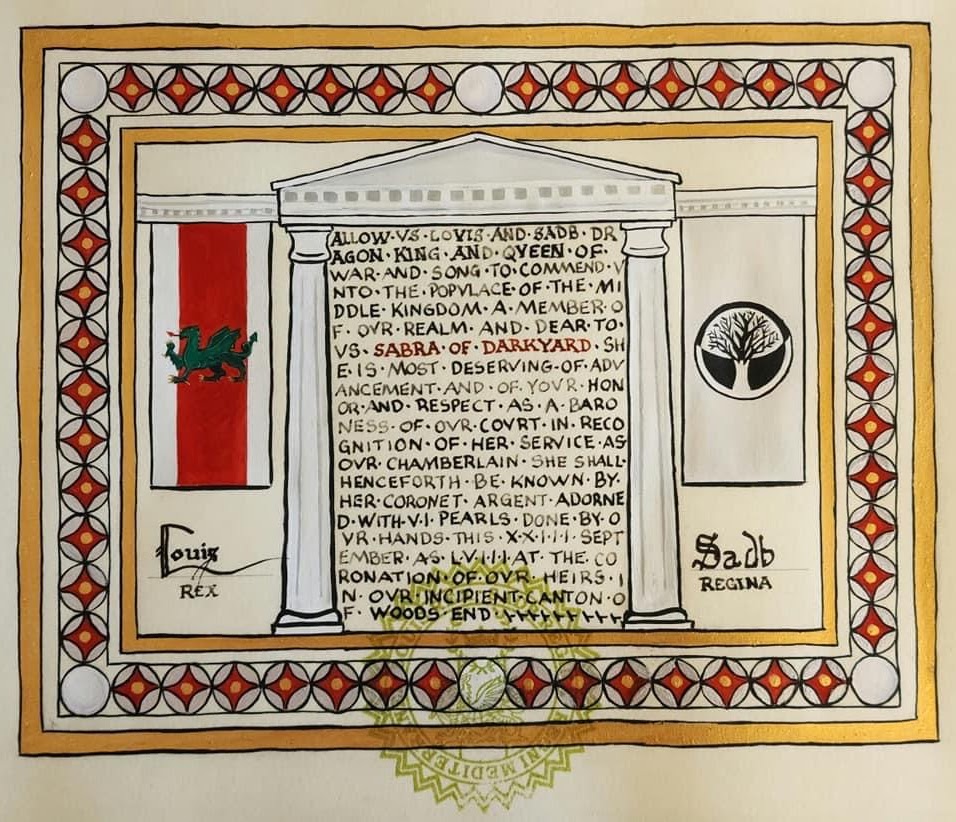 ALLOW·VS·LOVIS·AND·SADB·DR
AGON·KING·AND·QVEEN·OF·
WAR·AND·SONG·TO·COMMEND·V
NTO·THE·POPVLACE·OF·THE·MI
DDLE·KINGDOM·A·MEMBER·O
F·OVR·REALM·AND·DEAR·TO·
VS·SABRA·OF·DARKYARD·SH
E·IS·MOST·DESERVING·OF·ADV
ANCEMENT·AND·OF·YOVR·HON
OR·AND·RESPECT·AS·A·BARO
NESS·OF·OVR·COVRT·IN·RECO
GNITION·OF·HER·SERVICE·AS
OVR·CHAMBERLAIN·SHE·SHALL·
HENCEFORTH·BE·KNOWN·BY·
HER·CORONET·ARGENT·ADORNE
D·WITH·V·I·PEARLS·DONE·BY·O
VR·HANDS·THIS·X·X·I·I·I·SEPT
EMBER·AS·L·V·I·I·I·AT·THE·CO
RONATION·OF·OVR·HEIRS·I
N·OVR·INCIPIENT·CANTON·O
F·WOODS·END
Louis
REX
Sadb
REGINA
NI MEDITER